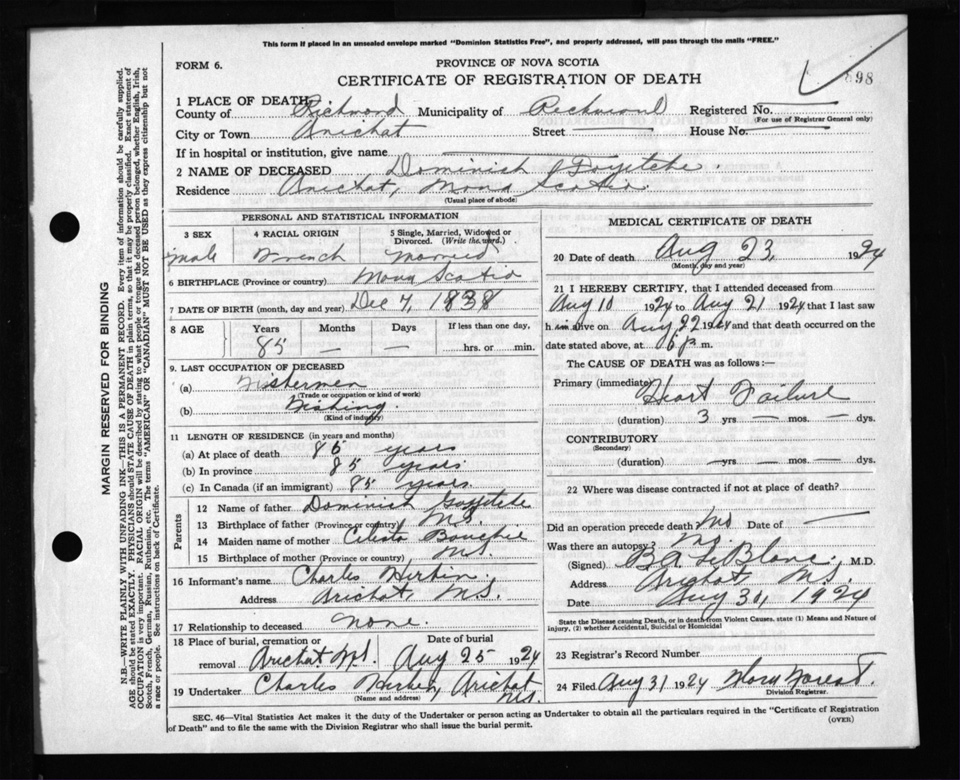 This form if placed in an unsealed envelope marked "Dominion Statistics Free", and properly addressed, will pass through the mails "FREE."
FORM 6.
PROVINCE OF NOVA SCOTIA
CERTIFICATE OF REGISTRATION OF DEATH
898
1 PLACE OF DEATH
County of Richmond Municipality of Richmond Registered No.
(For use of Registrar General only)
City or Town Arichat Street — House No. —
If in hospital or institution, give name —
2 NAME OF DECEASED Dominick Goyetche
Residence Arichat, Nova Scotia
(Usual place of abode)
MARGIN RESERVED FOR BINDING
N.B.—WRITE PLAINLY WITH UNFADING INK—THIS IS A PERMANENT RECORD. Every item of information should be carefully supplied.
AGE should be stated EXACTLY. PHYSICIANS should STATE CAUSE OF DEATH in plain terms, so that it may be properly classified. Exact statement of
OCCUPATION is very important. RACIAL ORIGIN will be described by stating to what people or tongue the deceased person belonged, whether English, Irish,
Scotch, French, German, Russian, Ruthenian, etc. The terms "AMERICAN" OR "CANADIAN" MUST NOT BE USED as they express citizenship but not
a race or people. See instructions on back of Certificate.
PERSONAL AND STATISTICAL INFORMATION
3 SEX 4 RACIAL ORIGIN 5 Single, Married, Widowed or
Divorced. (Write the word.)
male French Married
6 BIRTHPLACE (Province or country) Nova Scotia
7 DATE OF BIRTH (month, day and year) Dec 7, 1838
8 AGE Years Months Days If less than one day,
85 — — hrs. or min.
9. LAST OCCUPATION OF DECEASED
(a) Fistermen
(Trade or occupation or kind of work)
(b) Fishing
(Kind of industry)
11 LENGTH OF RESIDENCE (in years and months)
(a) At place of death 85 years
(b) In province 85 years
(c) In Canada (if an immigrant) 85 years
Parents
12 Name of father Dominick Goyetche
13 Birthplace of father (Province or country) N.S.
14 Maiden name of mother Celeste
15 Birthplace of mother (Province or country) N.S.
16 Informant's name Charles Herbin
Address Arichat N.S.
17 Relationship to deceased none
18 Place of burial, cremation or Date of burial
removal Arichat N.S. Aug 25 1924
19 Undertaker Charles Herbin, Arichat
(Name and address) N.S.
MEDICAL CERTIFICATE OF DEATH
20 Date of death Aug 23, 1924
(Month, day and year)
21 I HEREBY CERTIFY, that I attended deceased from
Aug 10 1924 to Aug 21 1924 that I last saw
him alive on Aug 22 1924 and that death occurred on the
date stated above, at 6 p m.
The CAUSE OF DEATH was as follows:—
Primary (immediate) Heart Failure
(duration) 3 yrs — mos. — dys.
CONTRIBUTORY
(Secondary)
(duration) — yrs — mos. — dys.
22 Where was disease contracted if not at place of death?
Did an operation precede death No Date of —
Was there an autopsy? No
(Signed) B.A. LeBlanc, M.D.
Address Arichat N.S.
Date Aug 30, 1924
State the Disease causing Death, or in death from Violent Causes, state (1) Means and Nature of
injury, (2) whether Accidental, Suicidal or Homicidal
23 Registrar's Record Number
24 Filed Aug 31 1924 Flora Forest
Division Registrar.
SEC. 46—Vital Statistics Act makes it the duty of the Undertaker or person acting as Undertaker to obtain all the particulars required in the "Certificate of Registration
of Death" and to file the same with the Division Registrar who shall issue the burial permit.
(OVER)